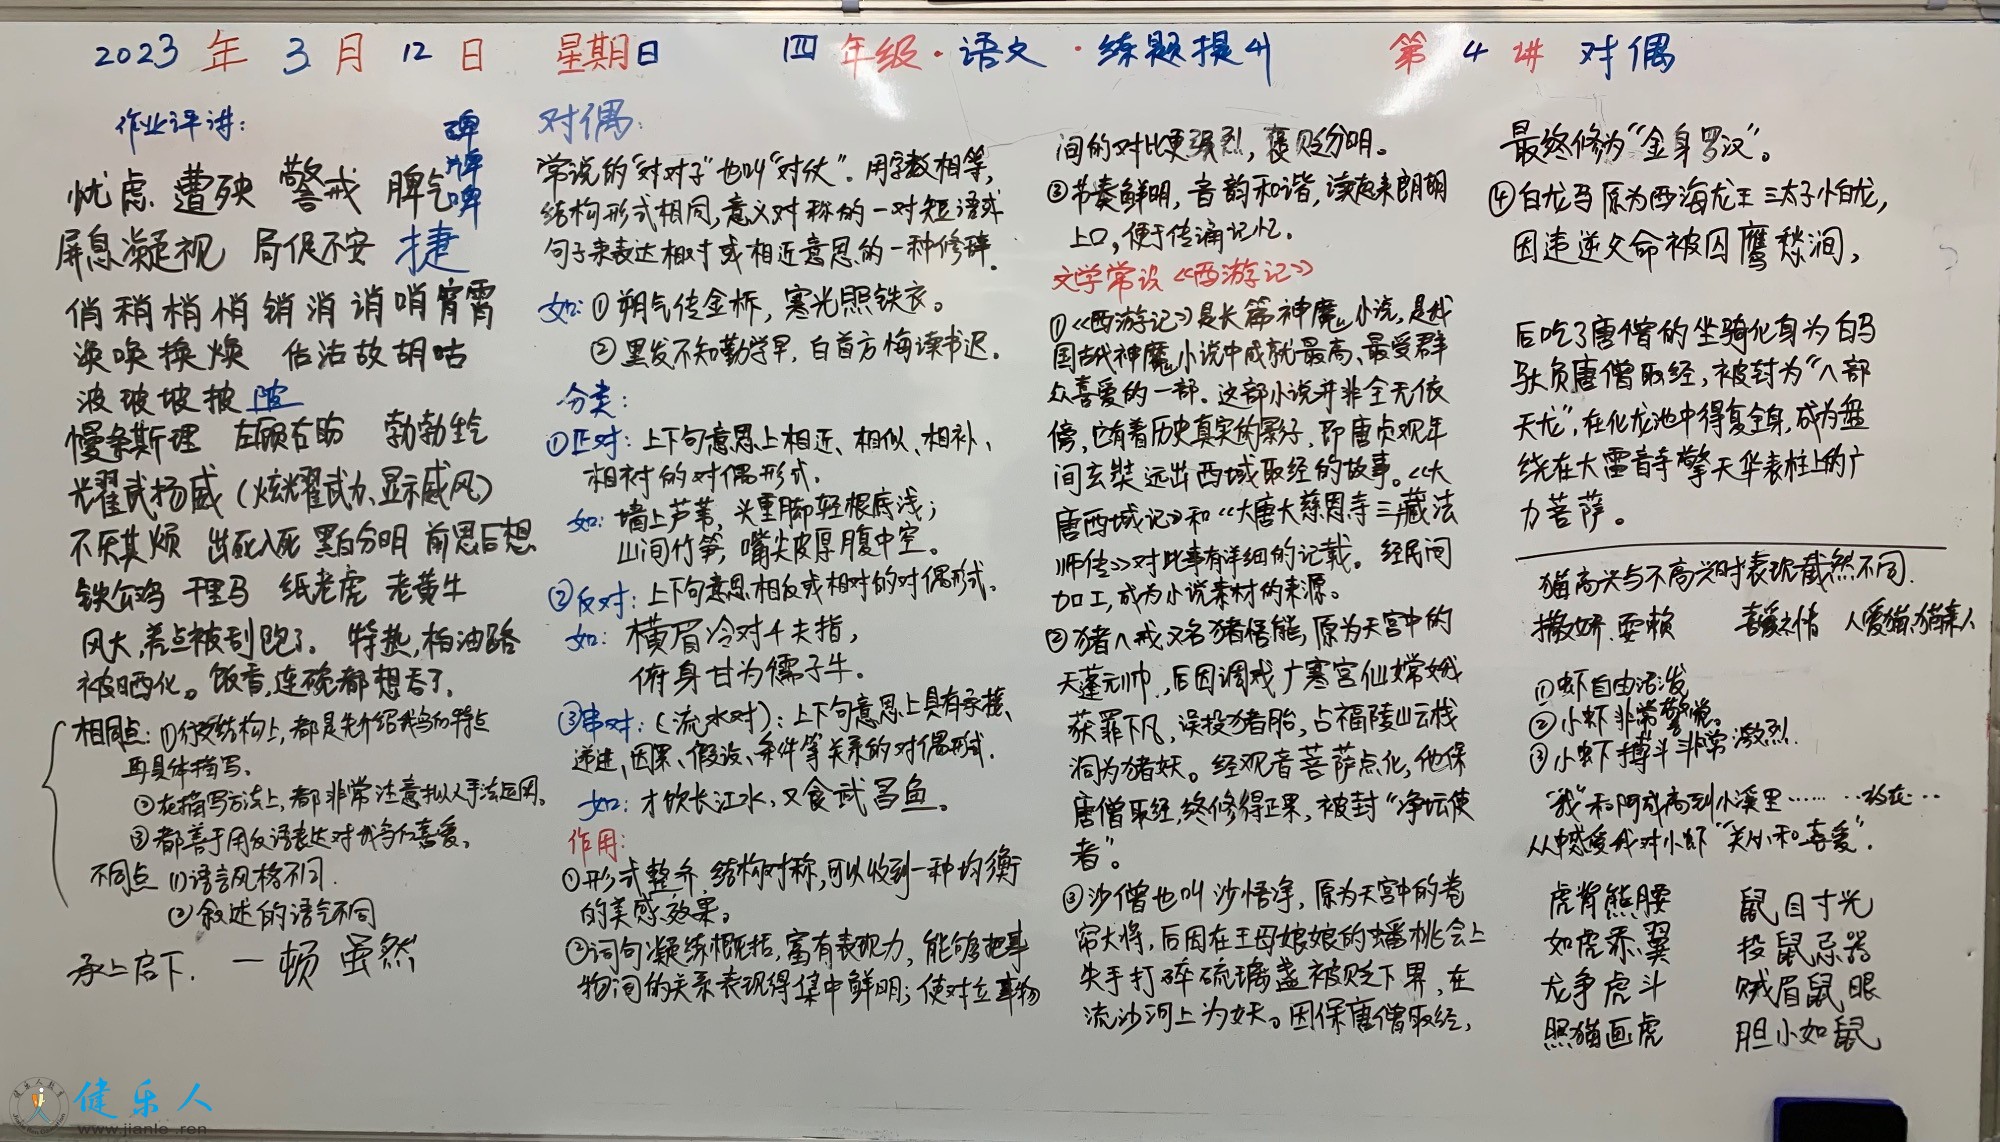 2023年3月12日 星期日 四年级·语文·练题提升 第4讲 对偶
作业评讲:
碑
牌
啤
忧虑 遭殃 警戒 脾气
屏息凝视 局促不安 捷
俏稍梢悄销消诮哨宵霄
涣唤换焕 估沽故胡咕
波玻坡披陂
慢条斯理 左顾右盼 勃勃生气
耀武扬威(炫耀武力、显示威风)
不厌其烦 出死入死 黑白分明 前思后想
铁公鸡 千里马 纸老虎 老黄牛
风大,差点被刮跑了。 特热,柏油路
被晒化。饭香,连碗都想吞了。
相同点:①行文结构上,都是先介绍我家的特点
再具体描写。
②在描写方法上,都非常注意拟人手法运用。
③都善于用反语表达对的喜爱。
不同点 ①语言风格不同.
②叙述的语气不同
承上启下. 一顿 虽然
对偶:
常说的“对对子”也叫“对仗”.用字数相等,
结构形式相同,意义对称的一对短语或
句子来表达相对或相近意思的一种修辞.
如:①朔气传金柝,寒光照铁衣。
②黑发不知勤学早,白首方悔读书迟.
分类:
①正对:上下句意思上相近、相似、相补、
相衬的对偶形式.
如:墙上芦苇,头重脚轻根底浅;
山间竹笋,嘴尖皮厚腹中空。
②反对:上下句意思相反或相对的对偶形式。
如: 横眉冷对千夫指,
俯身甘为儒子牛.
③串对:(流水对):上下句意思上具有承接、
递进、因果、假设、条件等关系的对偶形式.
如:才饮长江水,又食武昌鱼。
作用:
①形式整齐,结构对称,可以收到一种均衡
的美感效果。
②词句凝练概括,富有表现力,能够把事
物间的关系表现得集中鲜明;使对立事物
间的对比更强烈,褒贬分明。
③节奏鲜明,音韵和谐,读起来朗朗
上口,便于传诵记忆.
文学常设《西游记》
①《西游记》是长篇神魔小说,是我
国古代神魔小说中成就最高、最受群
众喜爱的一部。这部小说并非全无依
傍,它有着历史真实的影子,即唐贞观年
间玄奘远出西域取经的故事。《大
唐西域记》和《大唐大慈恩寺三藏法
师传》对此事有详细的记载。经民间
加工,成为小说素材的来源。
②猪八戒又名猪悟能,原为天宫中的
天蓬元帅,后因调戏广寒宫仙嫦娥
获罪下凡,误投猪胎,占福陵山云栈
洞为猪妖。经观音菩萨点化,他保
唐僧取经,终修得正果,被封“净坛使
者”。
③沙僧也叫沙悟净,原为天宫中的卷
帘大将,后因在王母娘娘的蟠桃会上
失手打碎硫璃盏被贬下界,在
流沙河上为妖。因保唐僧取经,
最终修为“金身罗汉”。
④白龙马原为西海龙王三太子小白龙,
因违逆父命被囚鹰愁涧,
后吃了唐僧的坐骑化身为白马
驮负唐僧取经,被封为“八部
天龙”,在化龙池中得复全身,成为盘
绕在大雷音寺擎天华表柱上的广
力菩萨。
猫高兴与不高兴时表现截然不同.
撒娇.耍赖 喜爱之情 人爱猫,猫亲人
①虾自由活泼
②小虾非常警觉。
③小虾搏斗非常激烈.
“我”和阿成高到小溪里…………放在…
从中感受我对小虾“关心和喜爱”.
虎背熊腰 鼠目寸光
如虎添翼 投鼠忌器
龙争虎斗 贼眉鼠眼
照猫画虎 胆小如鼠
健乐人
www.jianle.ren